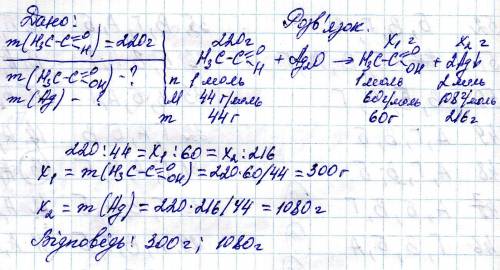 Дано: Розв'язок.
m(H₃C-C=O H)=220г
m(H₃C-C=O OH) - ?
m(Ag) - ?
220г X₁ г X₂ г
H₃C-C=O H + Ag₂O → H₃C-C=O OH + 2Ag↓
n 1 моль 1 моль 2 моль
M 44 г/моль 60г/моль 108г/моль
m 44 г 60г 216г
220:44 = X₁:60 = X₂:216
X₁ = m(H₃C-C=O OH) = 220·60/44 = 300г
X₂ = m(Ag) = 220·216/44 = 1080 г
Відповідь: 300г; 1080г